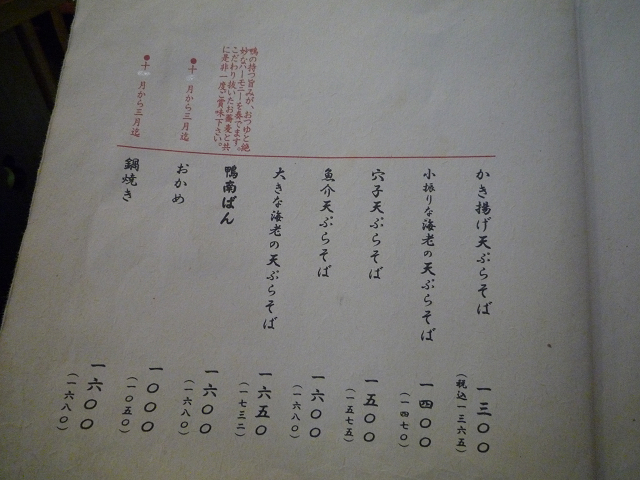 かき揚げ天ぷらそば 一三〇〇
(税込一三六五)
小振りな海老の天ぷらそば 一四〇〇
(一四七〇)
穴子天ぷらそば 一五〇〇
(一五七五)
魚介天ぷらそば 一六〇〇
(一六八〇)
大きな海老の天ぷらそば 一六五〇
(一七三二)
鴨の持つ旨みが、おつゆと絶
妙なハーモニーを奏でます。
こだわり抜いたお蕎麦と共
に是非一度ご賞味下さい。
鴨南ばん 一六〇〇
(一六八〇)
●十 月から三月迄
おかめ 一〇〇〇
(一〇五〇)
●十 月から三月迄
鍋焼き 一六〇〇
(一六八〇)